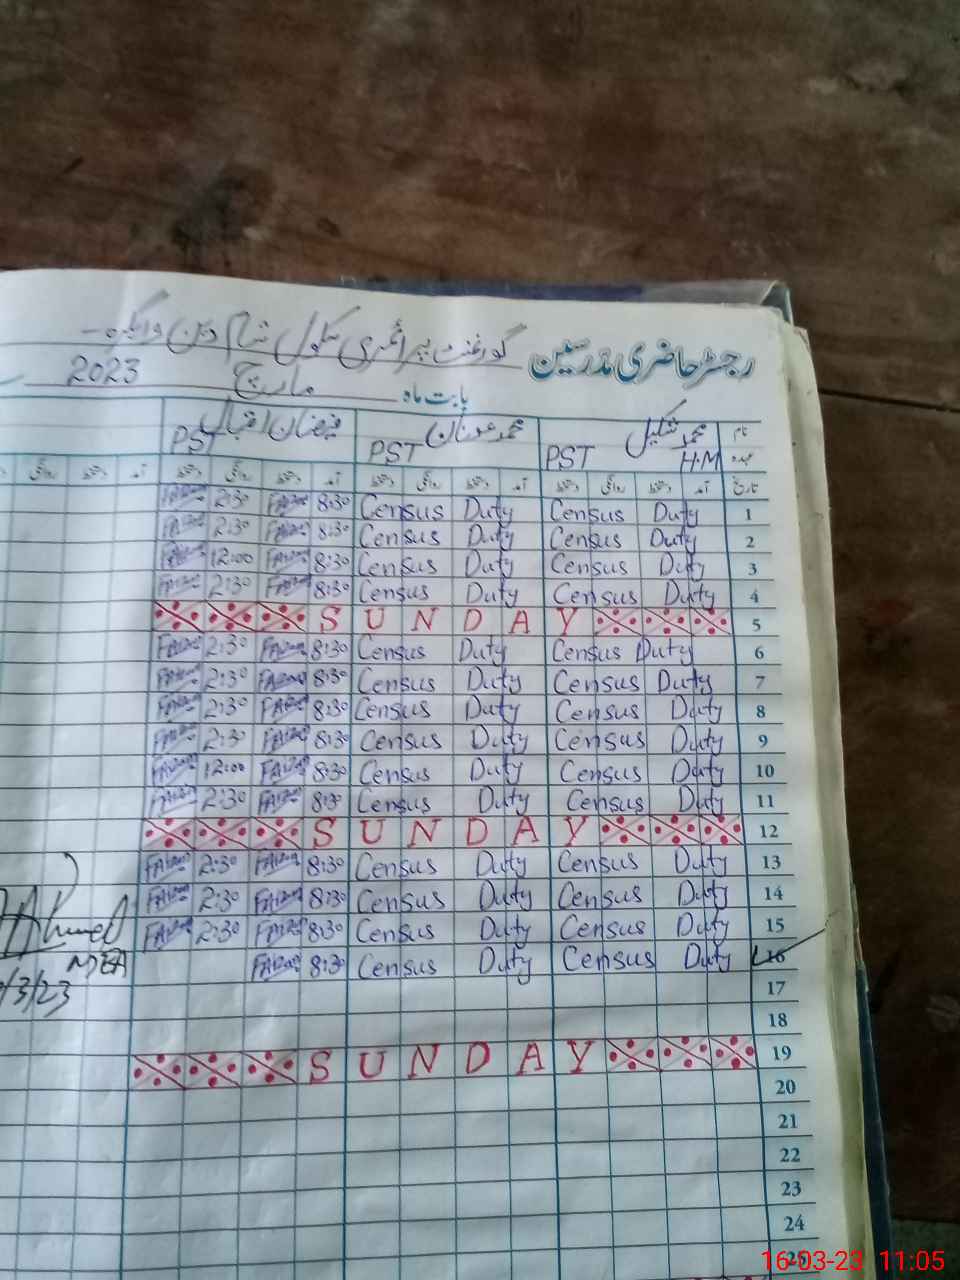 رجسٹر حاضری مدرسین گورنمنٹ پرائمری سکول
بابت ماہ مارچ 2023
نام محمد شکیل محمد عدنان فیضان اقبال
عہدہ H.M PST PST PST
تاریخ آمد دستخط روانگی دستخط آمد دستخط روانگی دستخط آمد دستخط روانگی دستخط آمد دستخط روانگی
2:30 8:30 Census Duty Census Duty 1
2:30 8:30 Census Duty Census Duty 2
12:00 8:30 Census Duty Census Duty 3
2:30 8:30 Census Duty Census Duty 4
SUNDAY 5
2:30 8:30 Census Duty Census Duty 6
2:30 8:30 Census Duty Census Duty 7
2:30 8:30 Census Duty Census Duty 8
2:30 8:30 Census Duty Census Duty 9
12:00 8:30 Census Duty Census Duty 10
2:30 8:30 Census Duty Census Duty 11
SUNDAY 12
2:30 8:30 Census Duty Census Duty 13
2:30 8:30 Census Duty Census Duty 14
Ahmed 2:30 8:30 Census Duty Census Duty 15
MEA 8:30 Census Duty Census Duty 16
/3/23 17
18
SUNDAY 19
20
21
22
23
24
25
16-03-23 11:05